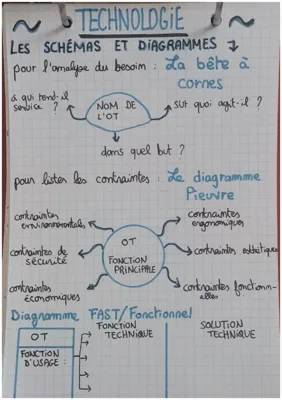 TECHNOLOGIE
LES SCHÉMAS ET DIAGRAMMES
pour l'analyse du besoin : La bête à
cornes
à qui rend-il
service ?
NOM DE
L'OT
sur quoi agit-il ?
dans quel but ?
pour lister les contraintes : Le diagramme
Pieuvre
contraintes
environnementales
contraintes
ergonomiques
contraintes de
sécurité
OT
FONCTION
PRINCIPALE
contraintes esthétiques
contraintes
économiques
contraintes fonctionn-
elles
Diagramme FAST/Fonctionnel
OT
FONCTION
D'USAGE :
FONCTION
TECHNIQUE
SOLUTION
TECHNIQUE